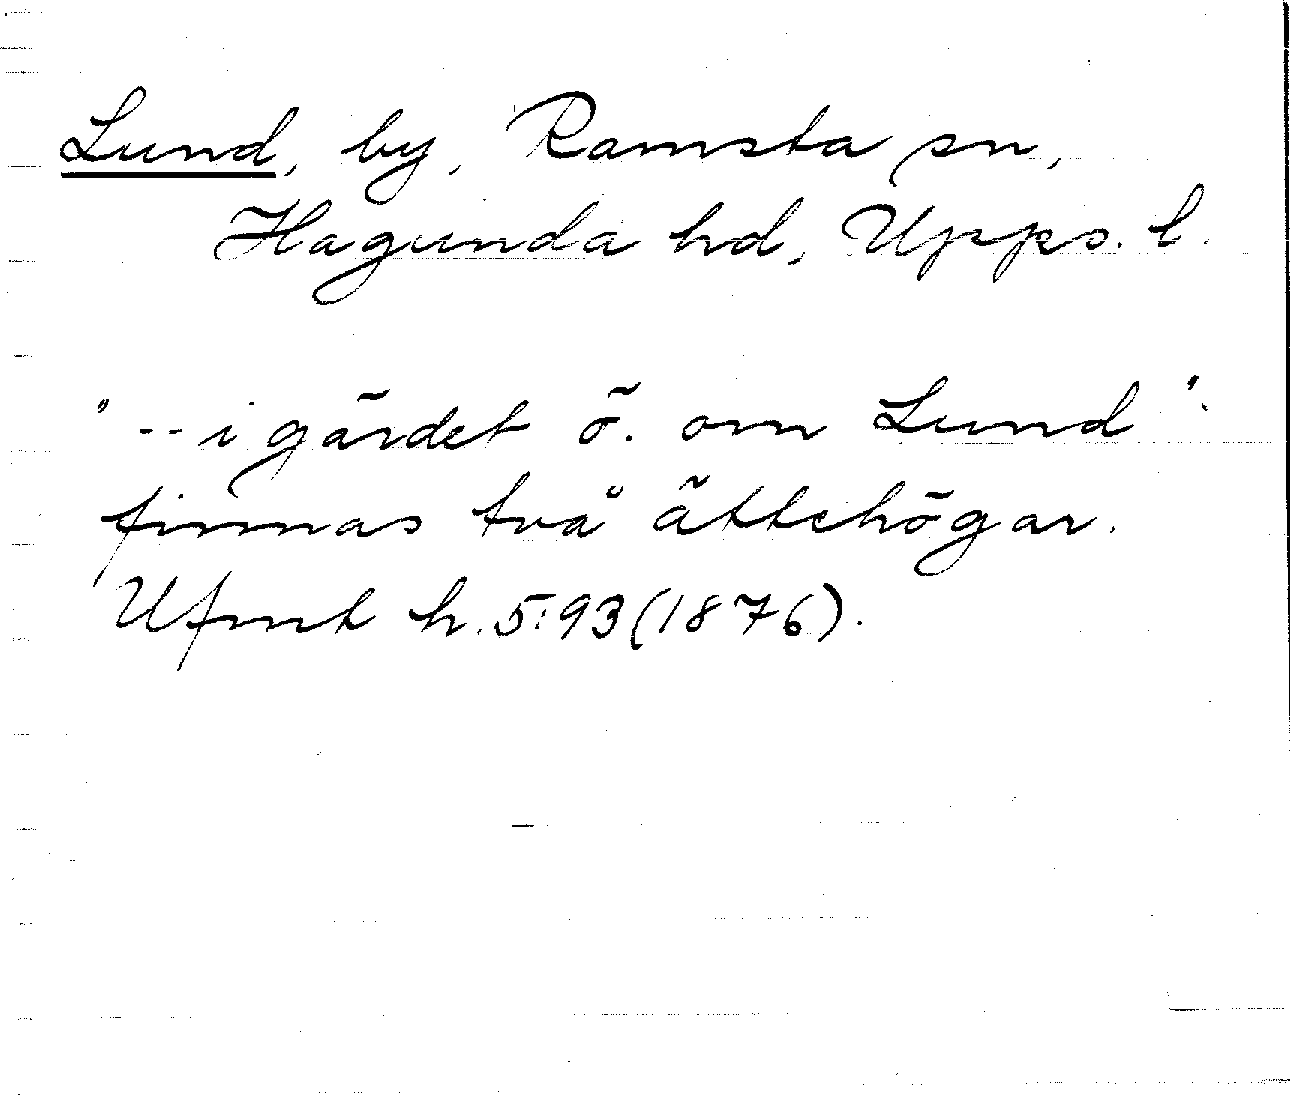 Lund, by, Ramsta sn,
Hagunda hd, Upps. l.
"--i gärdet ö. om Lund"
finnas två ättehögar.
Ufmt h. 5:93 (1876).